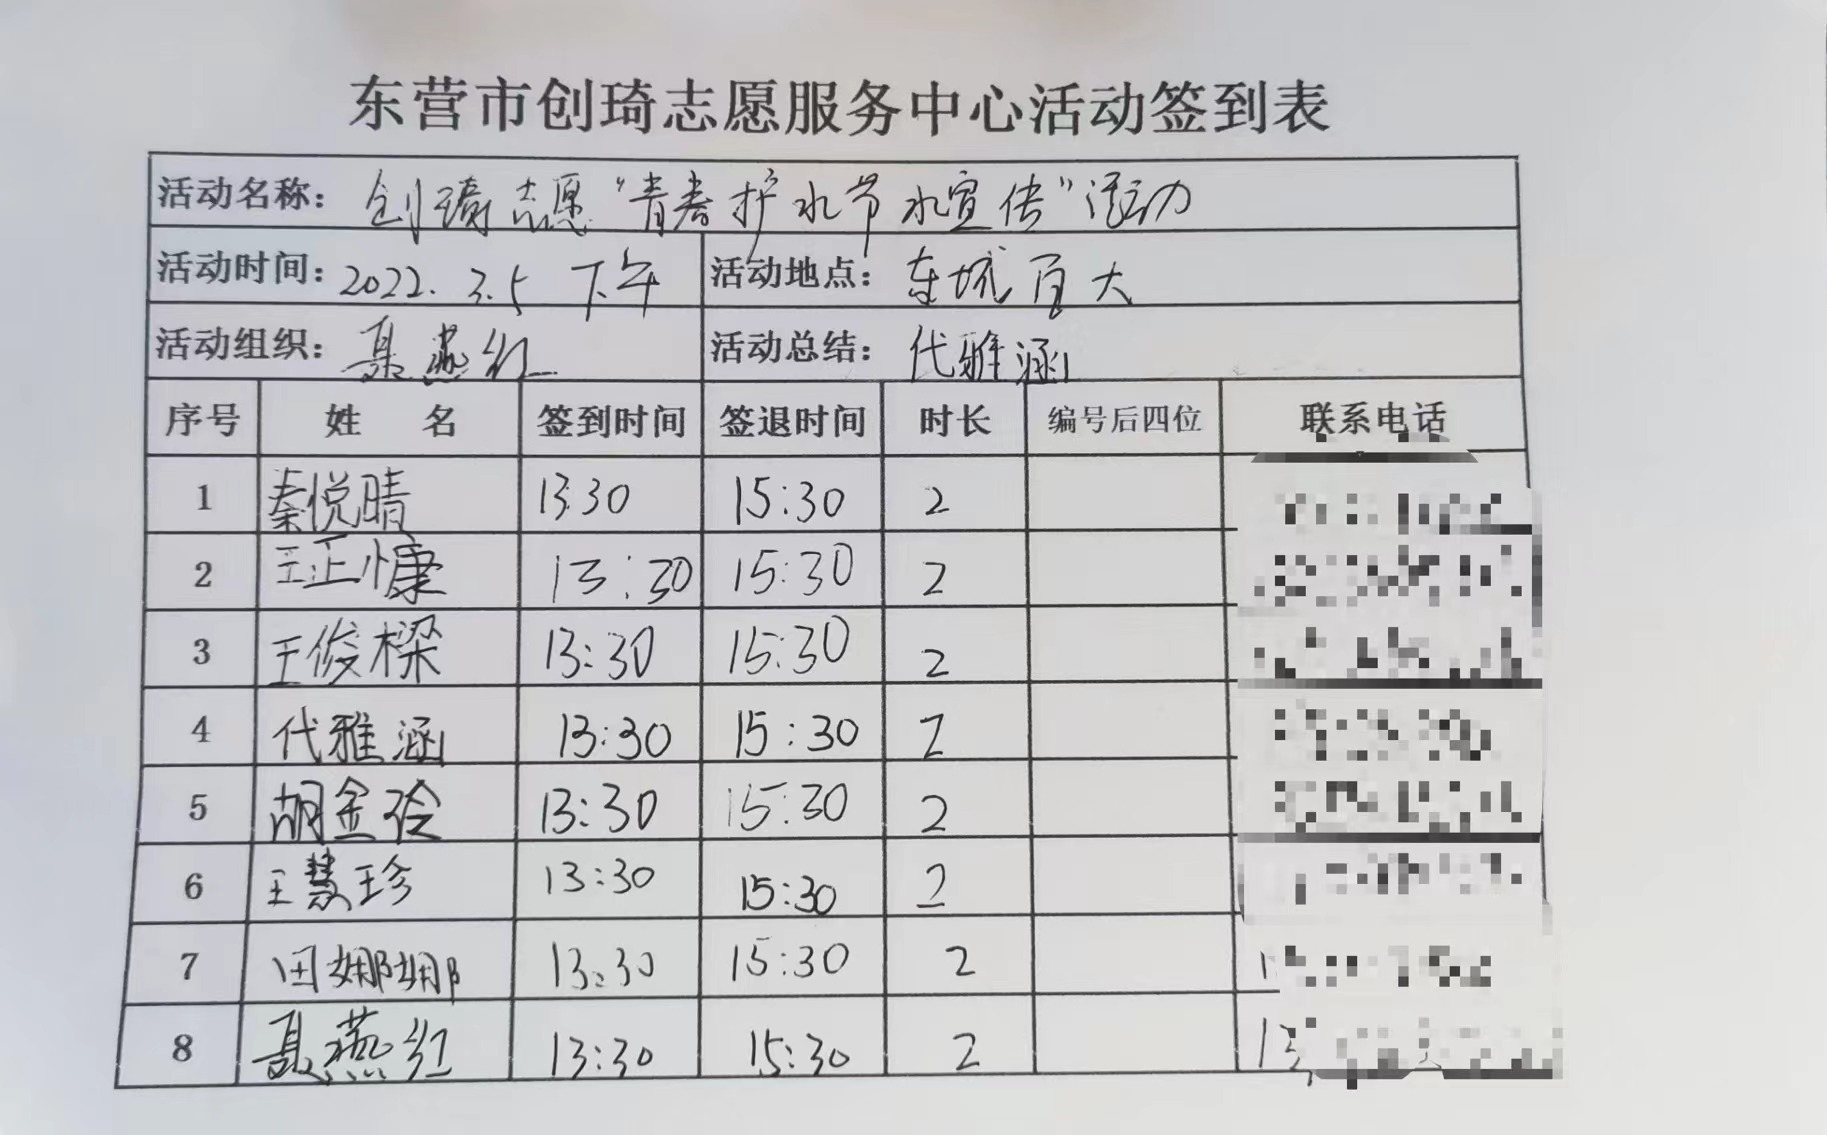 东营市创琦志愿服务中心活动签到表
活动名称：创琦志愿“青春护水节水宣传”活动
活动时间：2022.3.5 下午 活动地点：东城百大
活动组织：聂燕红 活动总结：代雅涵
序号 姓名 签到时间 签退时间 时长 编号后四位 联系电话
1 秦悦晴 13:30 15:30 2
2 王正慷 13:30 15:30 2
3 王俊樑 13:30 15:30 2
4 代雅涵 13:30 15:30 2
5 胡金 13:30 15:30 2
6 王慧珍 13:30 15:30 2
7 田娜娜 13:30 15:30 2
8 聂燕红 13:30 15:30 2